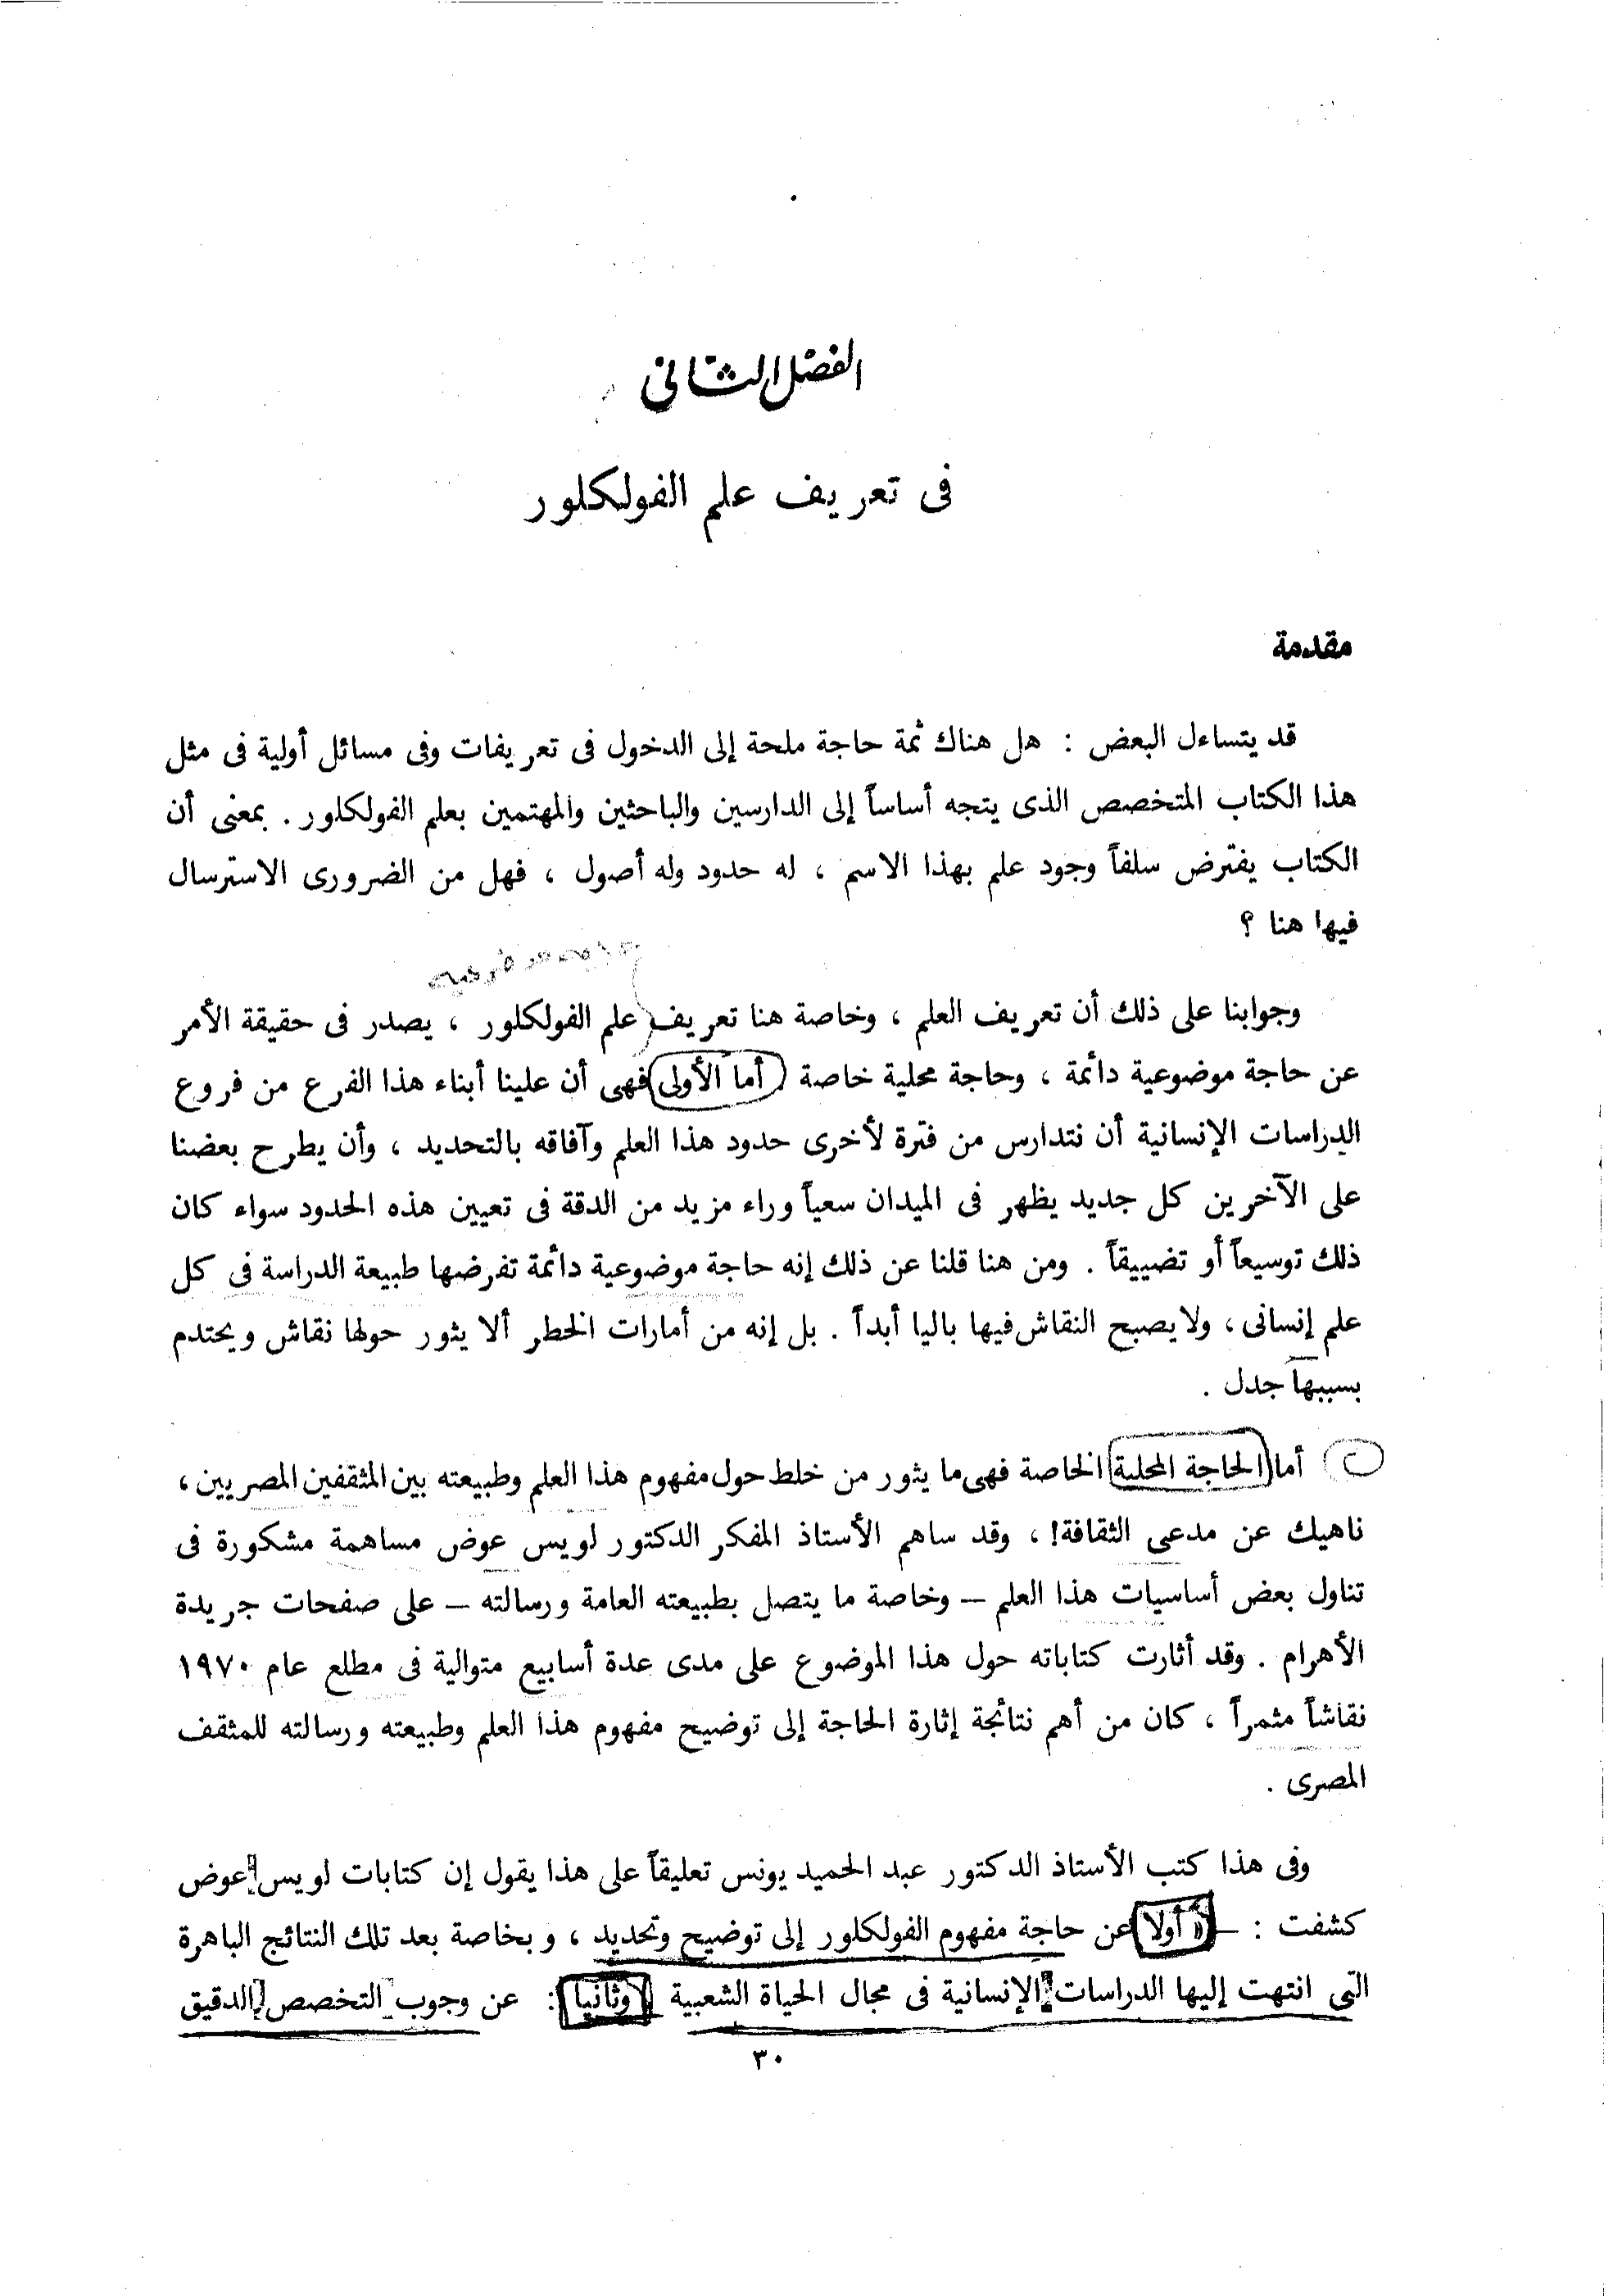 الفصل الثانى
فى تعريف علم الفولكلور
مقدمة
قد يتساءل البعض : هل هناك ثمة حاجة ملحة إلى الدخول فى تعريفات وفى مسائل أولية فى مثل
هذا الكتاب المتخصص الذى يتجه أساساً إلى الدارسين والباحثين والمهتمين بعلم الفولكلور . بمعنى أن
الكتاب يفترض سلفاً وجود علم بهذا الاسم ، له حدود وله أصول ، فهل من الضرورى الاسترسال
فيها هنا ؟
وجوابنا على ذلك أن تعريف العلم ، وخاصة هنا تعريف علم الفولكلور ، يصدر فى حقيقة الأمر
عن حاجة موضوعية دائمة ، وحاجة محلية خاصة ( أما الأولى فهى أن علينا أبناء هذا الفرع من فروع
الدراسات الإنسانية أن نتدارس من فترة لأخرى حدود هذا العلم وآفاقه بالتحديد ، وأن يطرح بعضنا
على الآخرين كل جديد يظهر فى الميدان سعياً وراء مزيد من الدقة فى تعيين هذه الحدود سواء كان
ذلك توسيعاً أو تضييقاً . ومن هنا قلنا عن ذلك إنه حاجة موضوعية دائمة تفرضها طبيعة الدراسة فى كل
علم إنسانى ، ولا يصبح النقاش فيها باليا أبداً . بل إنه من أمارات الخطر ألا يثور حولها نقاش ويحتدم
بسببها جدل .
أما الحاجة المحلية الخاصة فهى ما يثور من خلط حول مفهوم هذا العلم وطبيعته بين المثقفين المصريين ،
ناهيك عن مدعى الثقافة! ، وقد ساهم الأستاذ المفكر الدكتور لويس عوض مساهمة مشكورة فى
تناول بعض أساسيات هذا العلم – وخاصة ما يتصل بطبيعته العامة ورسالته – على صفحات جريدة
الأهرام . وقد أثارت كتاباته حول هذا الموضوع على مدى عدة أسابيع متوالية فى مطلع عام ١٩٧٠
نقاشاً مثمراً ، كان من أهم نتائجة إثارة الحاجة إلى توضيح مفهوم هذا العلم وطبيعته ورسالته للمثقف
المصرى .
وفى هذا كتب الأستاذ الدكتور عبد الحميد يونس تعليقاً على هذا يقول إن كتابات لويس عوض
كشفت : – « أولا عن حاجة مفهوم الفولكلور إلى توضيح وتحديد ، وبخاصة بعد تلك النتائج الباهرة
التى انتهت إليها الدراسات الإنسانية فى مجال الحياة الشعبية وثانيا : عن وجوب التخصص الدقيق
٣٠